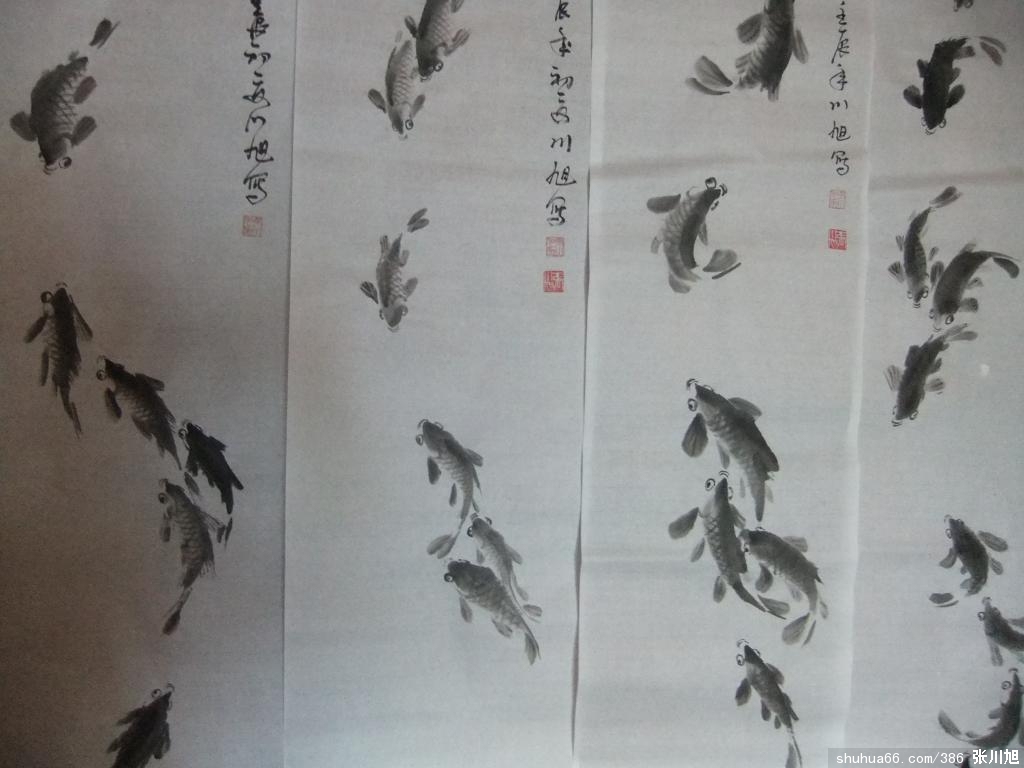 壬辰初夏川旭写
辰年初夏川旭写
壬辰年川旭写
shuhua66.com/386 张川旭